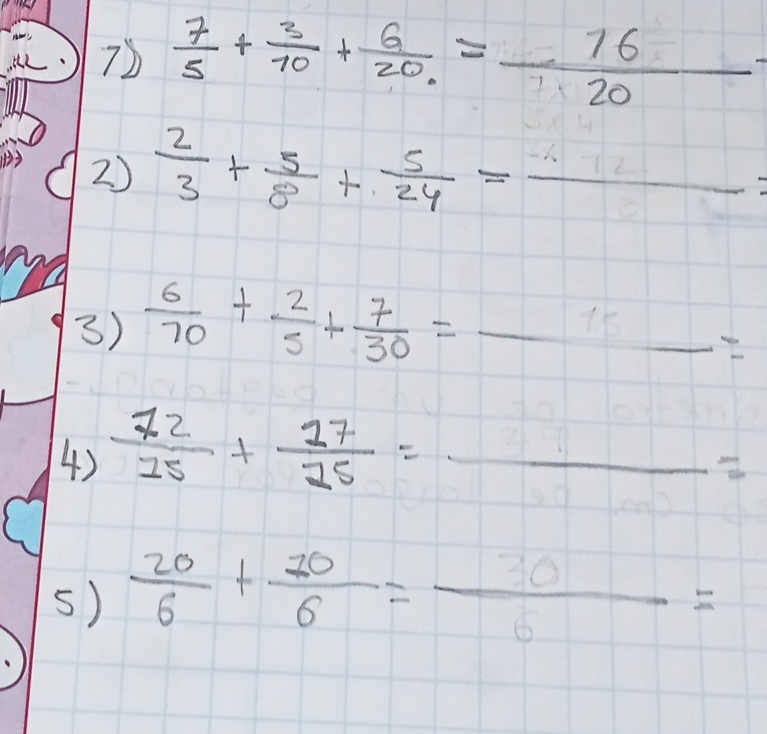 1) 7/5 + 3/10 + 6/20. = 16/20
2) 2/3 + 5/8 + 5/24 = ——— =
3) 6/10 + 2/5 + 7/30 = ——— =
4) 12/15 + 17/15 = ——— =
5) 20/6 + 10/6 = 30/6 =